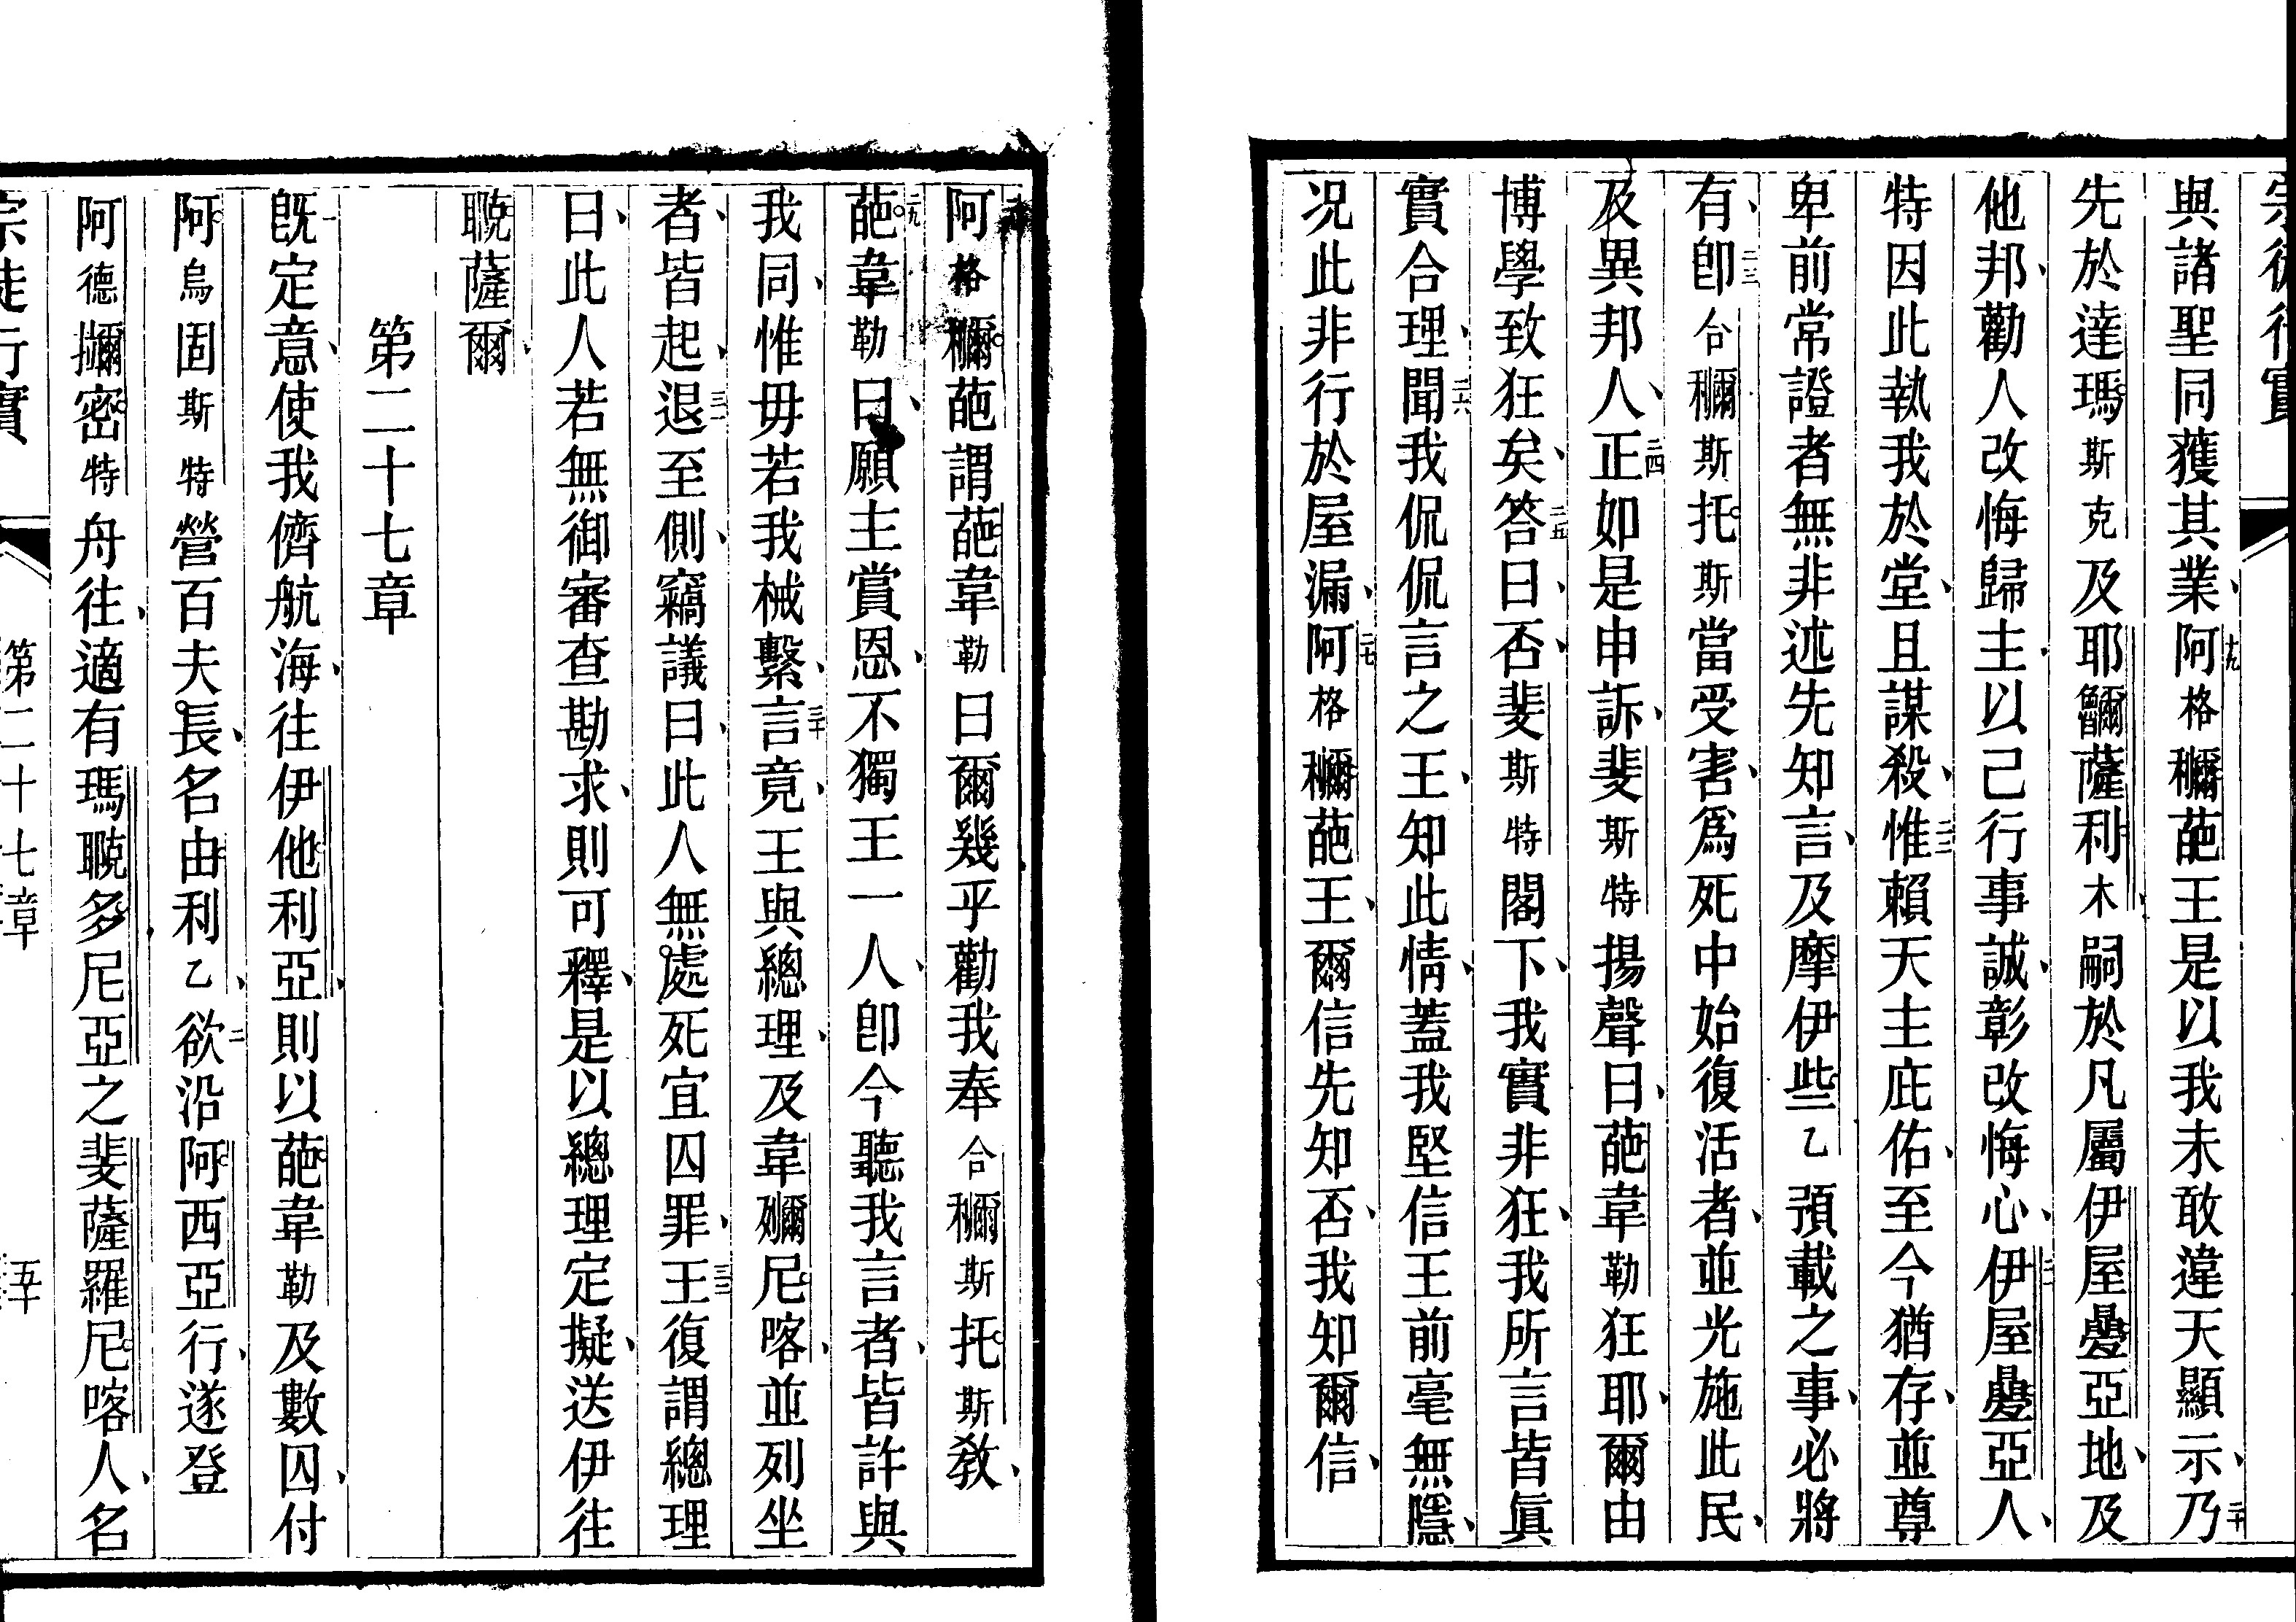 宗徒行實
與諸聖同獲其業、十九阿格穪葩王是以我未敢違天顯示、二十乃
先於達瑪斯克及耶䤔薩利木、嗣於凡屬伊屋疉亞地、及
他邦、勸人改悔歸主、以己行事誠、彰改悔心、二一伊屋疉亞人、
特因此執我於堂、且謀殺、二二惟賴天主庇佑、至今猶存、並尊
卑前常證者、無非述先知言、及摩伊些乙預載之事、必將
有、二三卽合穪斯托斯當受害、爲死中始復活者、並光施此民、
及異邦人、二四正如是申訴、斐斯特揚聲曰、葩韋勒狂耶、爾由
博學致狂矣、二五答曰、否、斐斯特閣下、我實非狂、我所言皆眞
實合理、二六聞我侃侃言之王、知此情、蓋我堅信王前毫無隱、
況此非行於屋漏、二七阿格穪葩王、爾信先知否、我知爾信、
二八阿格穪葩謂葩韋勒曰爾幾乎勸我奉合穪斯托斯教、
二九葩韋勒曰、願主賞恩、不獨王一人、卽今聽我言者、皆許與
我同、惟毋若我械繫、三十言竟、王與總理、及韋嬭尼喀、並列坐
者、皆起、退三一至側、竊議曰、此人無處死宜囚罪、三二王復謂總理
曰、此人若無御審查勘求、則可釋、是以總理定擬、送伊往
䫿薩爾、
第二十七章
一旣定意、使我儕航海、往伊他利亞、則以葩韋勒及數囚、付
阿烏固斯特營百夫長、名由利乙、二欲沿阿西亞行、遂登
阿德擟密特舟往、適有瑪䫿多尼亞之斐薩羅尼喀人、名
宗徒行實 第二十七章 五十